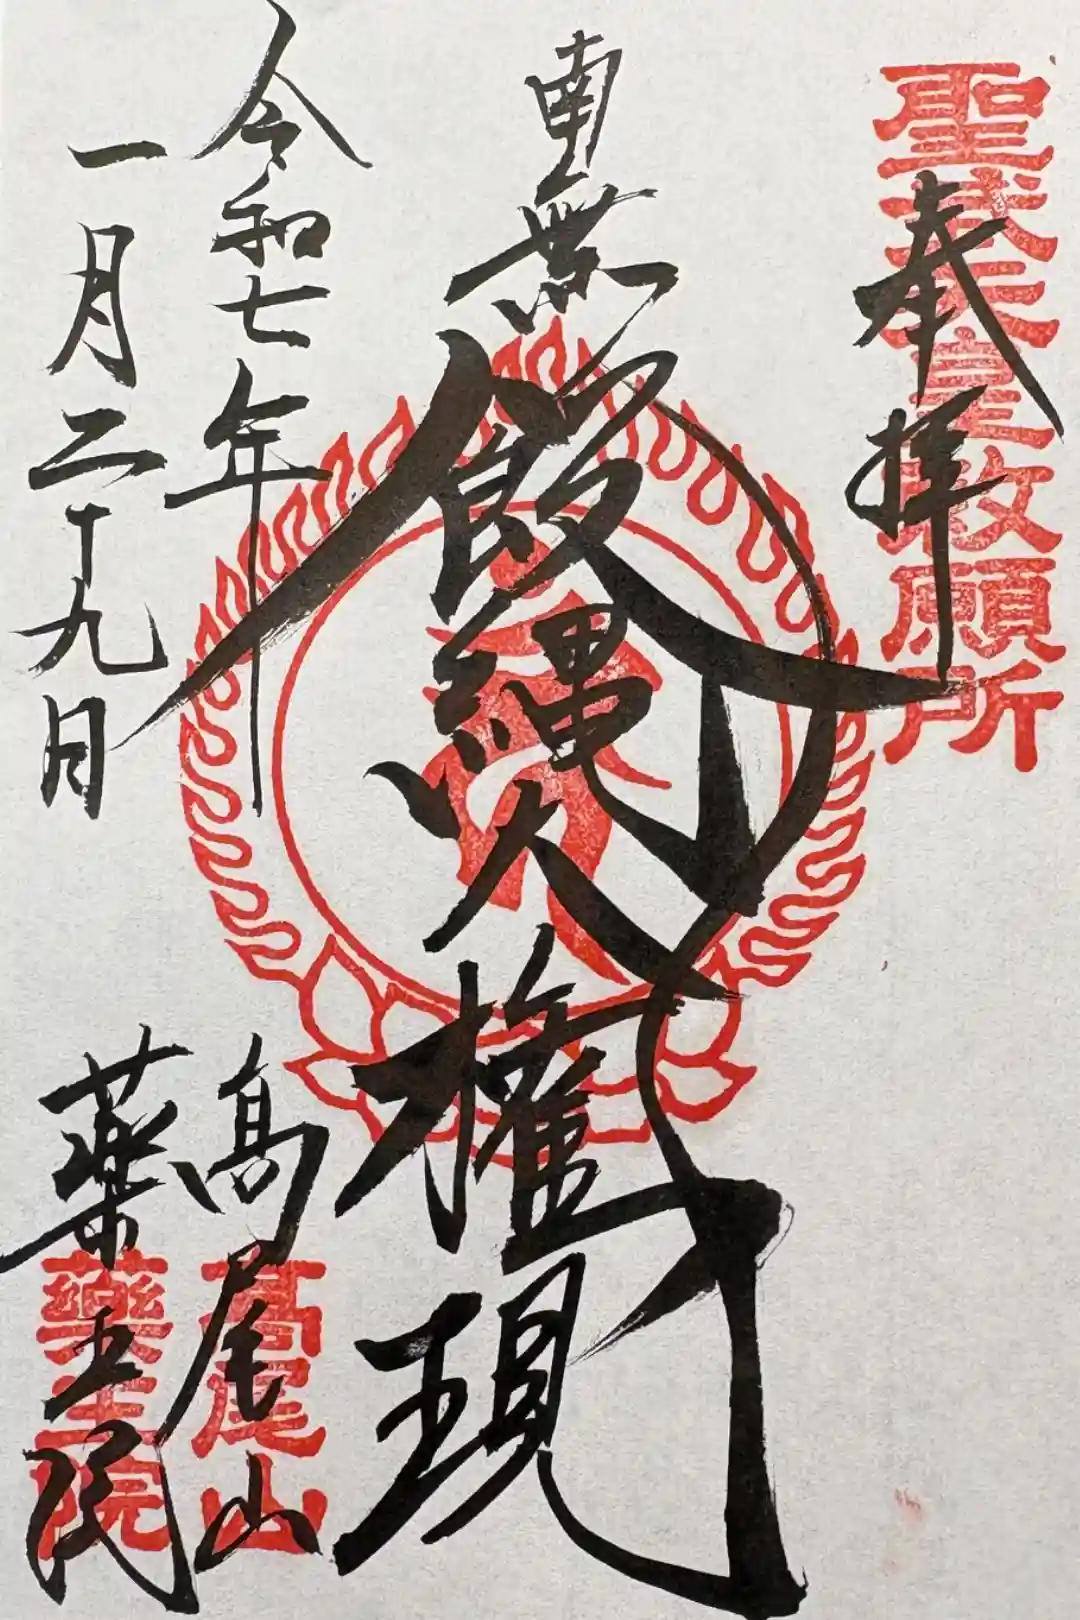 奉拝
聖武天皇敕願所
南無飯縄大権現
令和七年
一月二十九日
高尾山
薬王院
髙尾山
藥王院